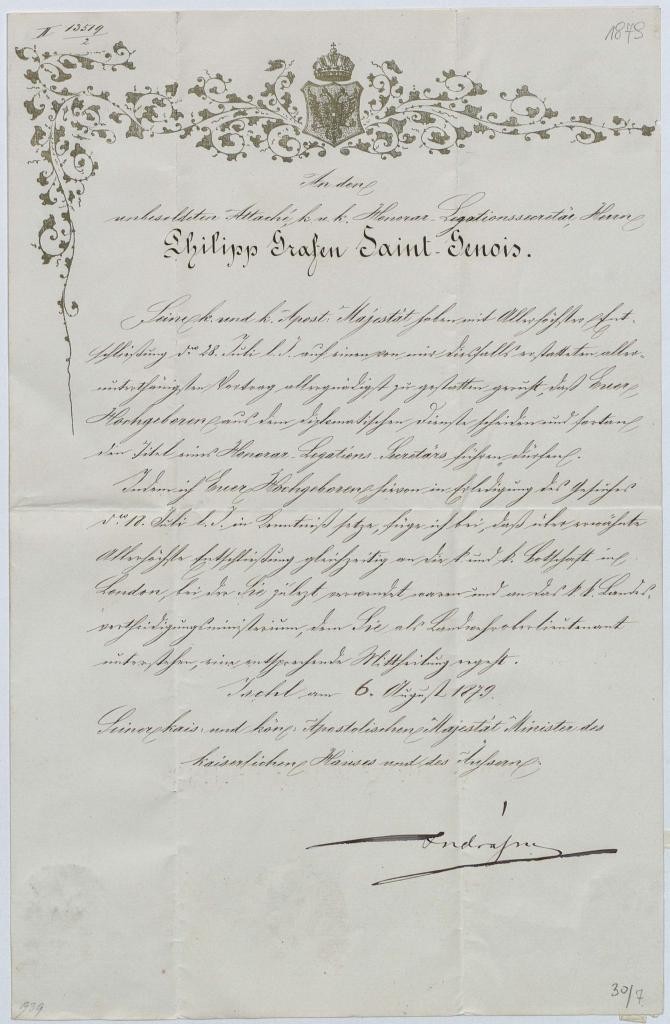 IV 13519/2
1878
An den
unbesoldeten Attaché, k. u. k. Honorar-Legationssecretär, Herrn
Philipp Grafen Saint-Genois.
Seine k. und k. Apost: Majestät haben mit Allerhöchster Ent-
schließung dto 28. Juli l. J. auf einen von mir diesfalls erstatteten aller-
unterthänigsten Vortrag allergnädigst zu gestatten geruht, daß Euer
Hochgeboren aus dem diplomatischen Dienste scheiden und fortan
den Titel eines Honorar-Legations-Secretärs führen dürfen.
Indem ich Euer Hochgeboren hievon in Erledigung des Gesuches
dto 18. Juli l. J. in Kenntniß setze, füge ich bei, daß über erwähnte
Allerhöchste Entschließung gleichzeitig an die k. und k. Botschaft in
London, bei der Sie zuletzt verwendet waren und an das k. k. Landes-
vertheidigungsministerium, dem Sie als Landwehroberlieutenant
unterstehen, eine entsprechende Mittheilung ergeht.
Ischl am 6. August 1879.
Seiner kais: und kön: Apostolischen Majestät Minister des
kaiserlichen Hauses und des Äußern:
Andrássy
939
30/7